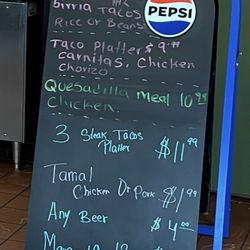 birria Tacos
Rice or Beans
PEPSI
Taco Platter $ 9.99
carnitas, Chicken
chorizo
Quesadilla Meal 10.99
Chicken
3 Steak Tacos
Platter $11.99
Tamal
Chicken Or Pork $1.99
Any Beer
$4.00